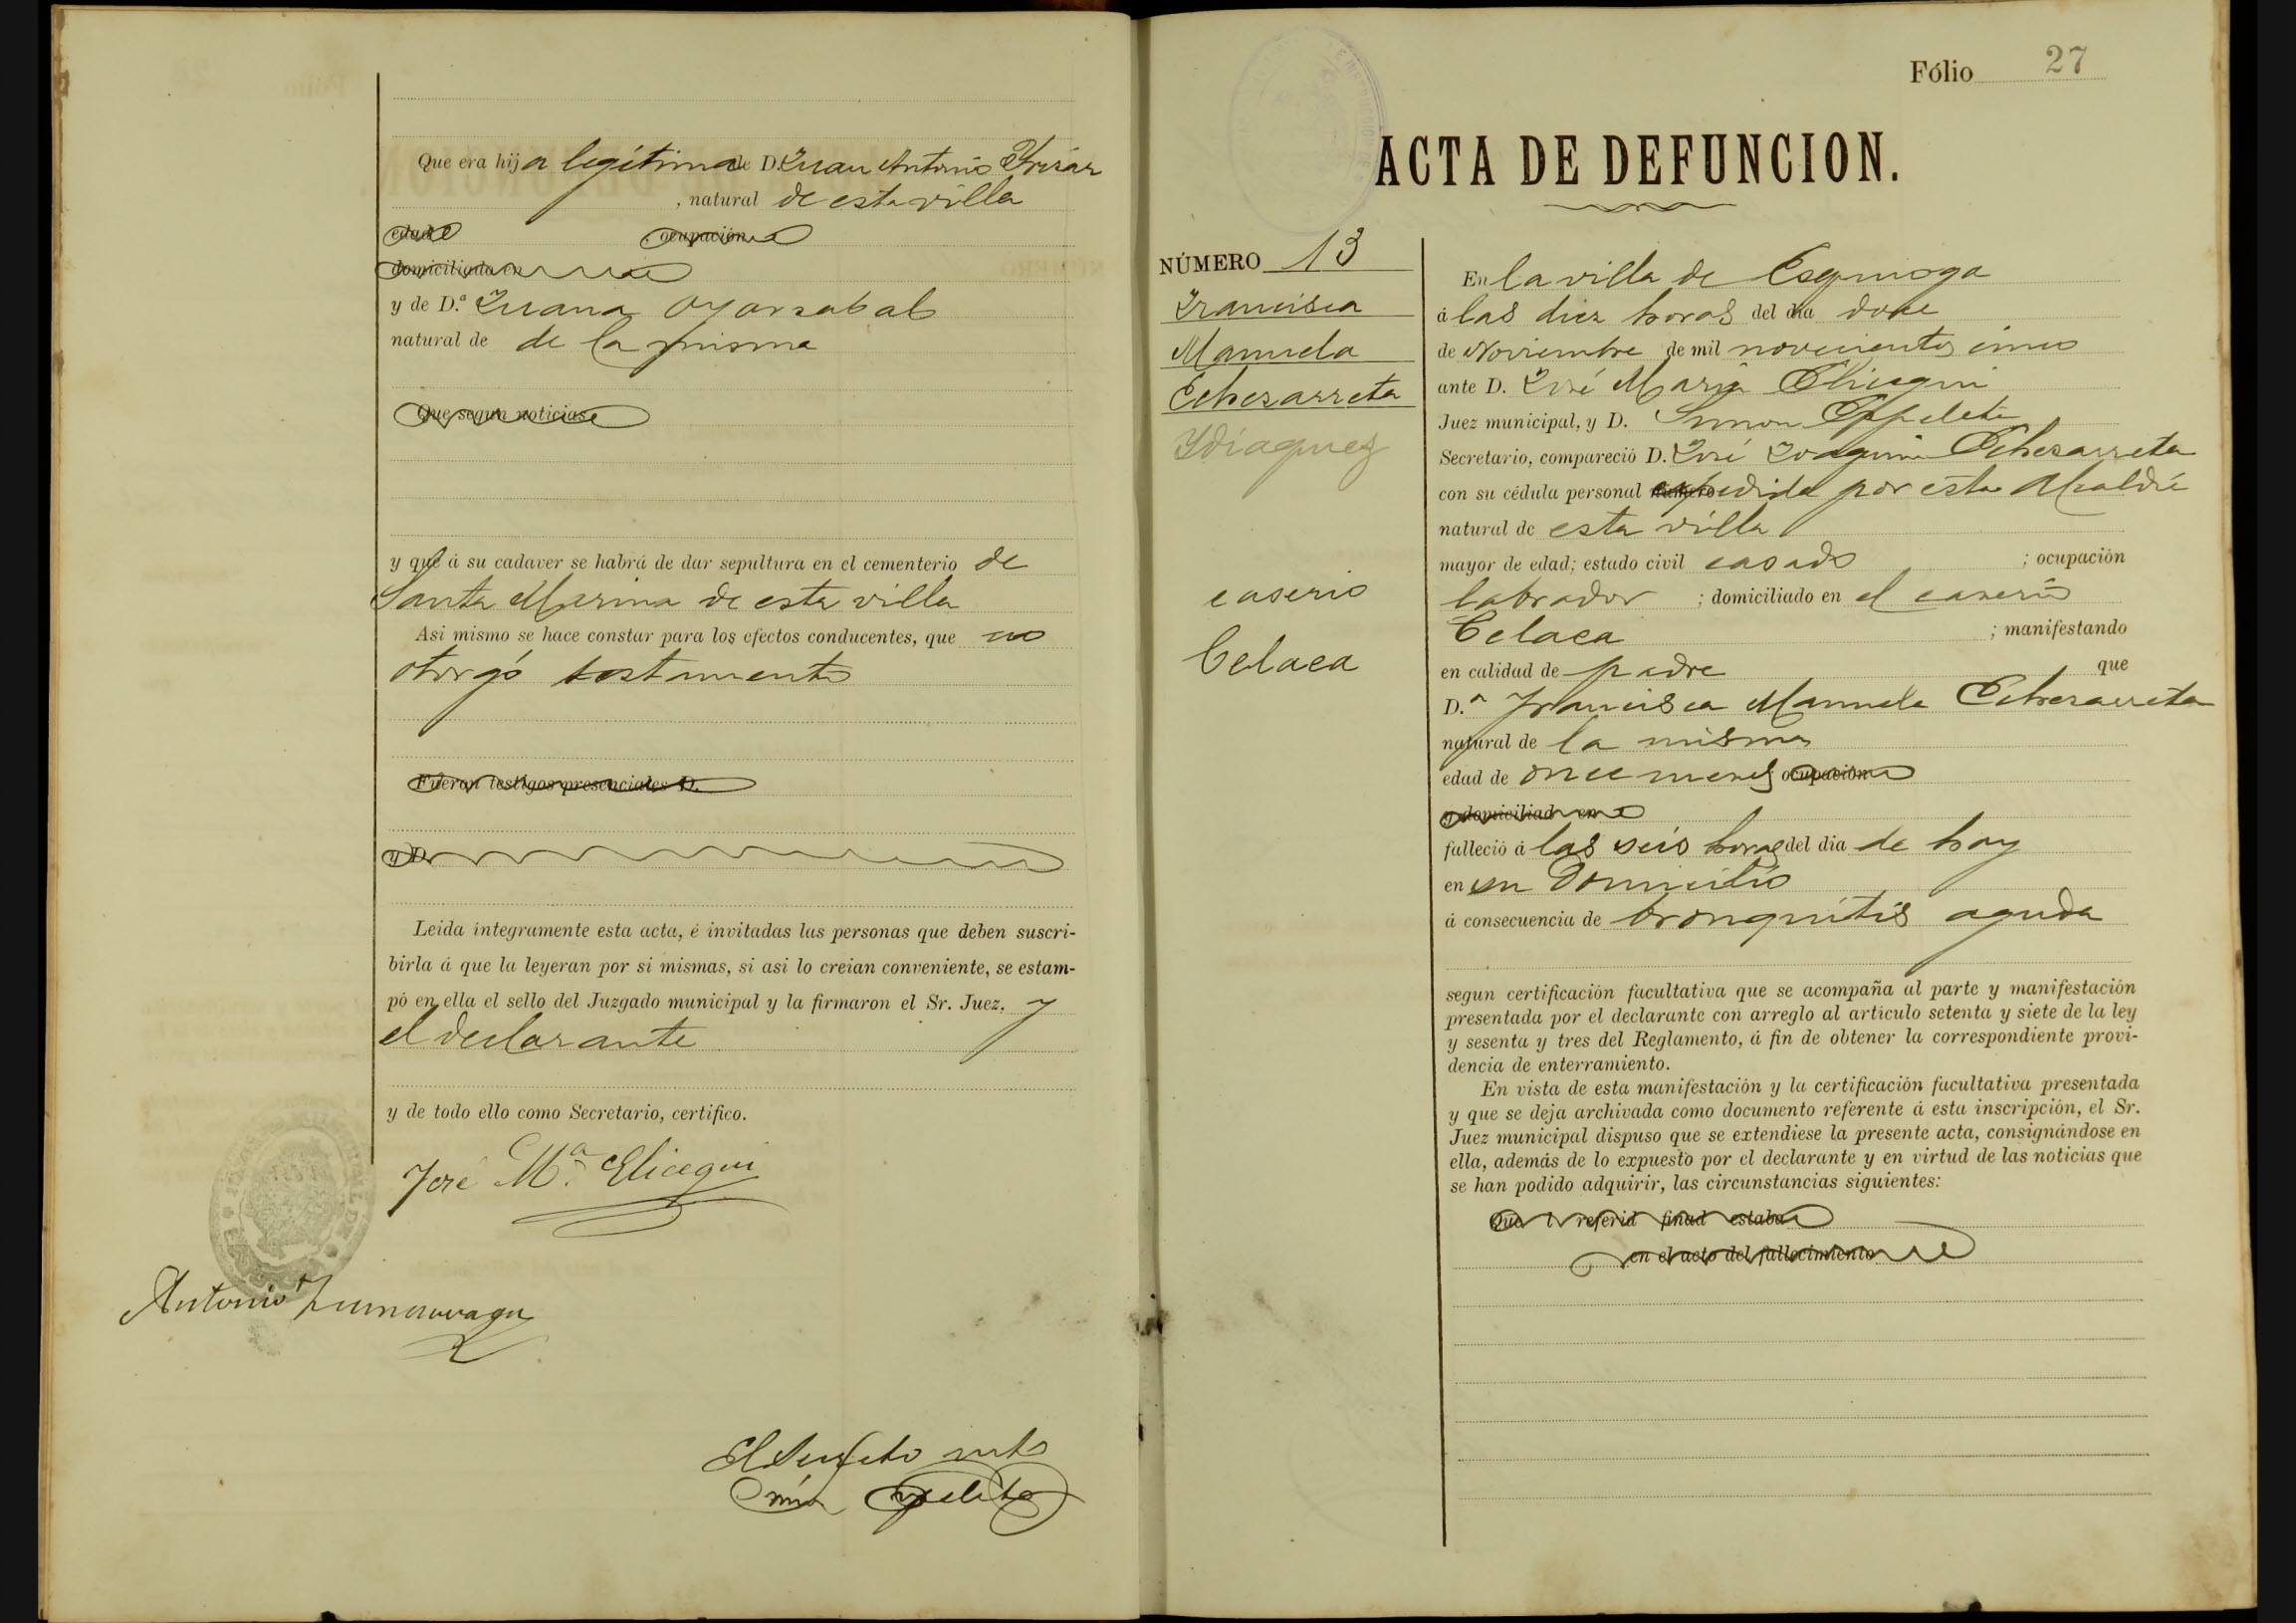 Que era hija legítima de D. Juan Antonio Yrizar
, natural de esta villa
edad , ocupación
domiciliado en
y de D.ª Juana Oyarzabal
natural de de la misma
Que segun noticias
y que á su cadaver se habrá de dar sepultura en el cementerio de
Santa Marina de esta villa
Asi mismo se hace constar para los efectos conducentes, que no
otorgó testamento
Fueron testigos presenciales D.
y D.
Leida íntegramente esta acta, é invitadas las personas que deben suscri-
birla á que la leyeran por si mismas, si asi lo creian conveniente, se estam-
pó en ella el sello del Juzgado municipal y la firmaron el Sr. Juez, y
el declarante
y de todo ello como Secretario, certifico.
José M.ª Elicegui
Antonio
El
Fólio 27
ACTA DE DEFUNCION.
NÚMERO 13
Francisca
Manuela
Echezarreta
Ydiaquez
caserio
Celaca
En la villa de Ezquioga
á las diez horas del dia doce
de Noviembre de mil novecientos cinco
ante D. José Maria Elicegui
Juez municipal, y D. Simon Oppelete
Secretario, compareció D. José Joaquin Echezarreta
con su cédula personal número expedida por esta Alcaldia
natural de esta villa
mayor de edad; estado civil casado ; ocupación
labrador ; domiciliado en el caserio
Celaca ; manifestando
en calidad de padre que
D.ª Francisca Manuela Echezarreta
natural de la misma
edad de once meses ocupación
y domiciliad en
falleció á las seis horas del dia de hoy
en su domicilio
á consecuencia de bronquitis aguda
segun certificación facultativa que se acompaña al parte y manifestación
presentada por el declarante con arreglo al artículo setenta y siete de la ley
y sesenta y tres del Reglamento, á fin de obtener la correspondiente provi-
dencia de enterramiento.
En vista de esta manifestación y la certificación facultativa presentada
y que se deja archivada como documento referente á esta inscripción, el Sr.
Juez municipal dispuso que se extendiese la presente acta, consignándose en
ella, además de lo expuesto por el declarante y en virtud de las noticias que
se han podido adquirir, las circunstancias siguientes:
Que l referid finad estaba
en el acto del fallecimiento